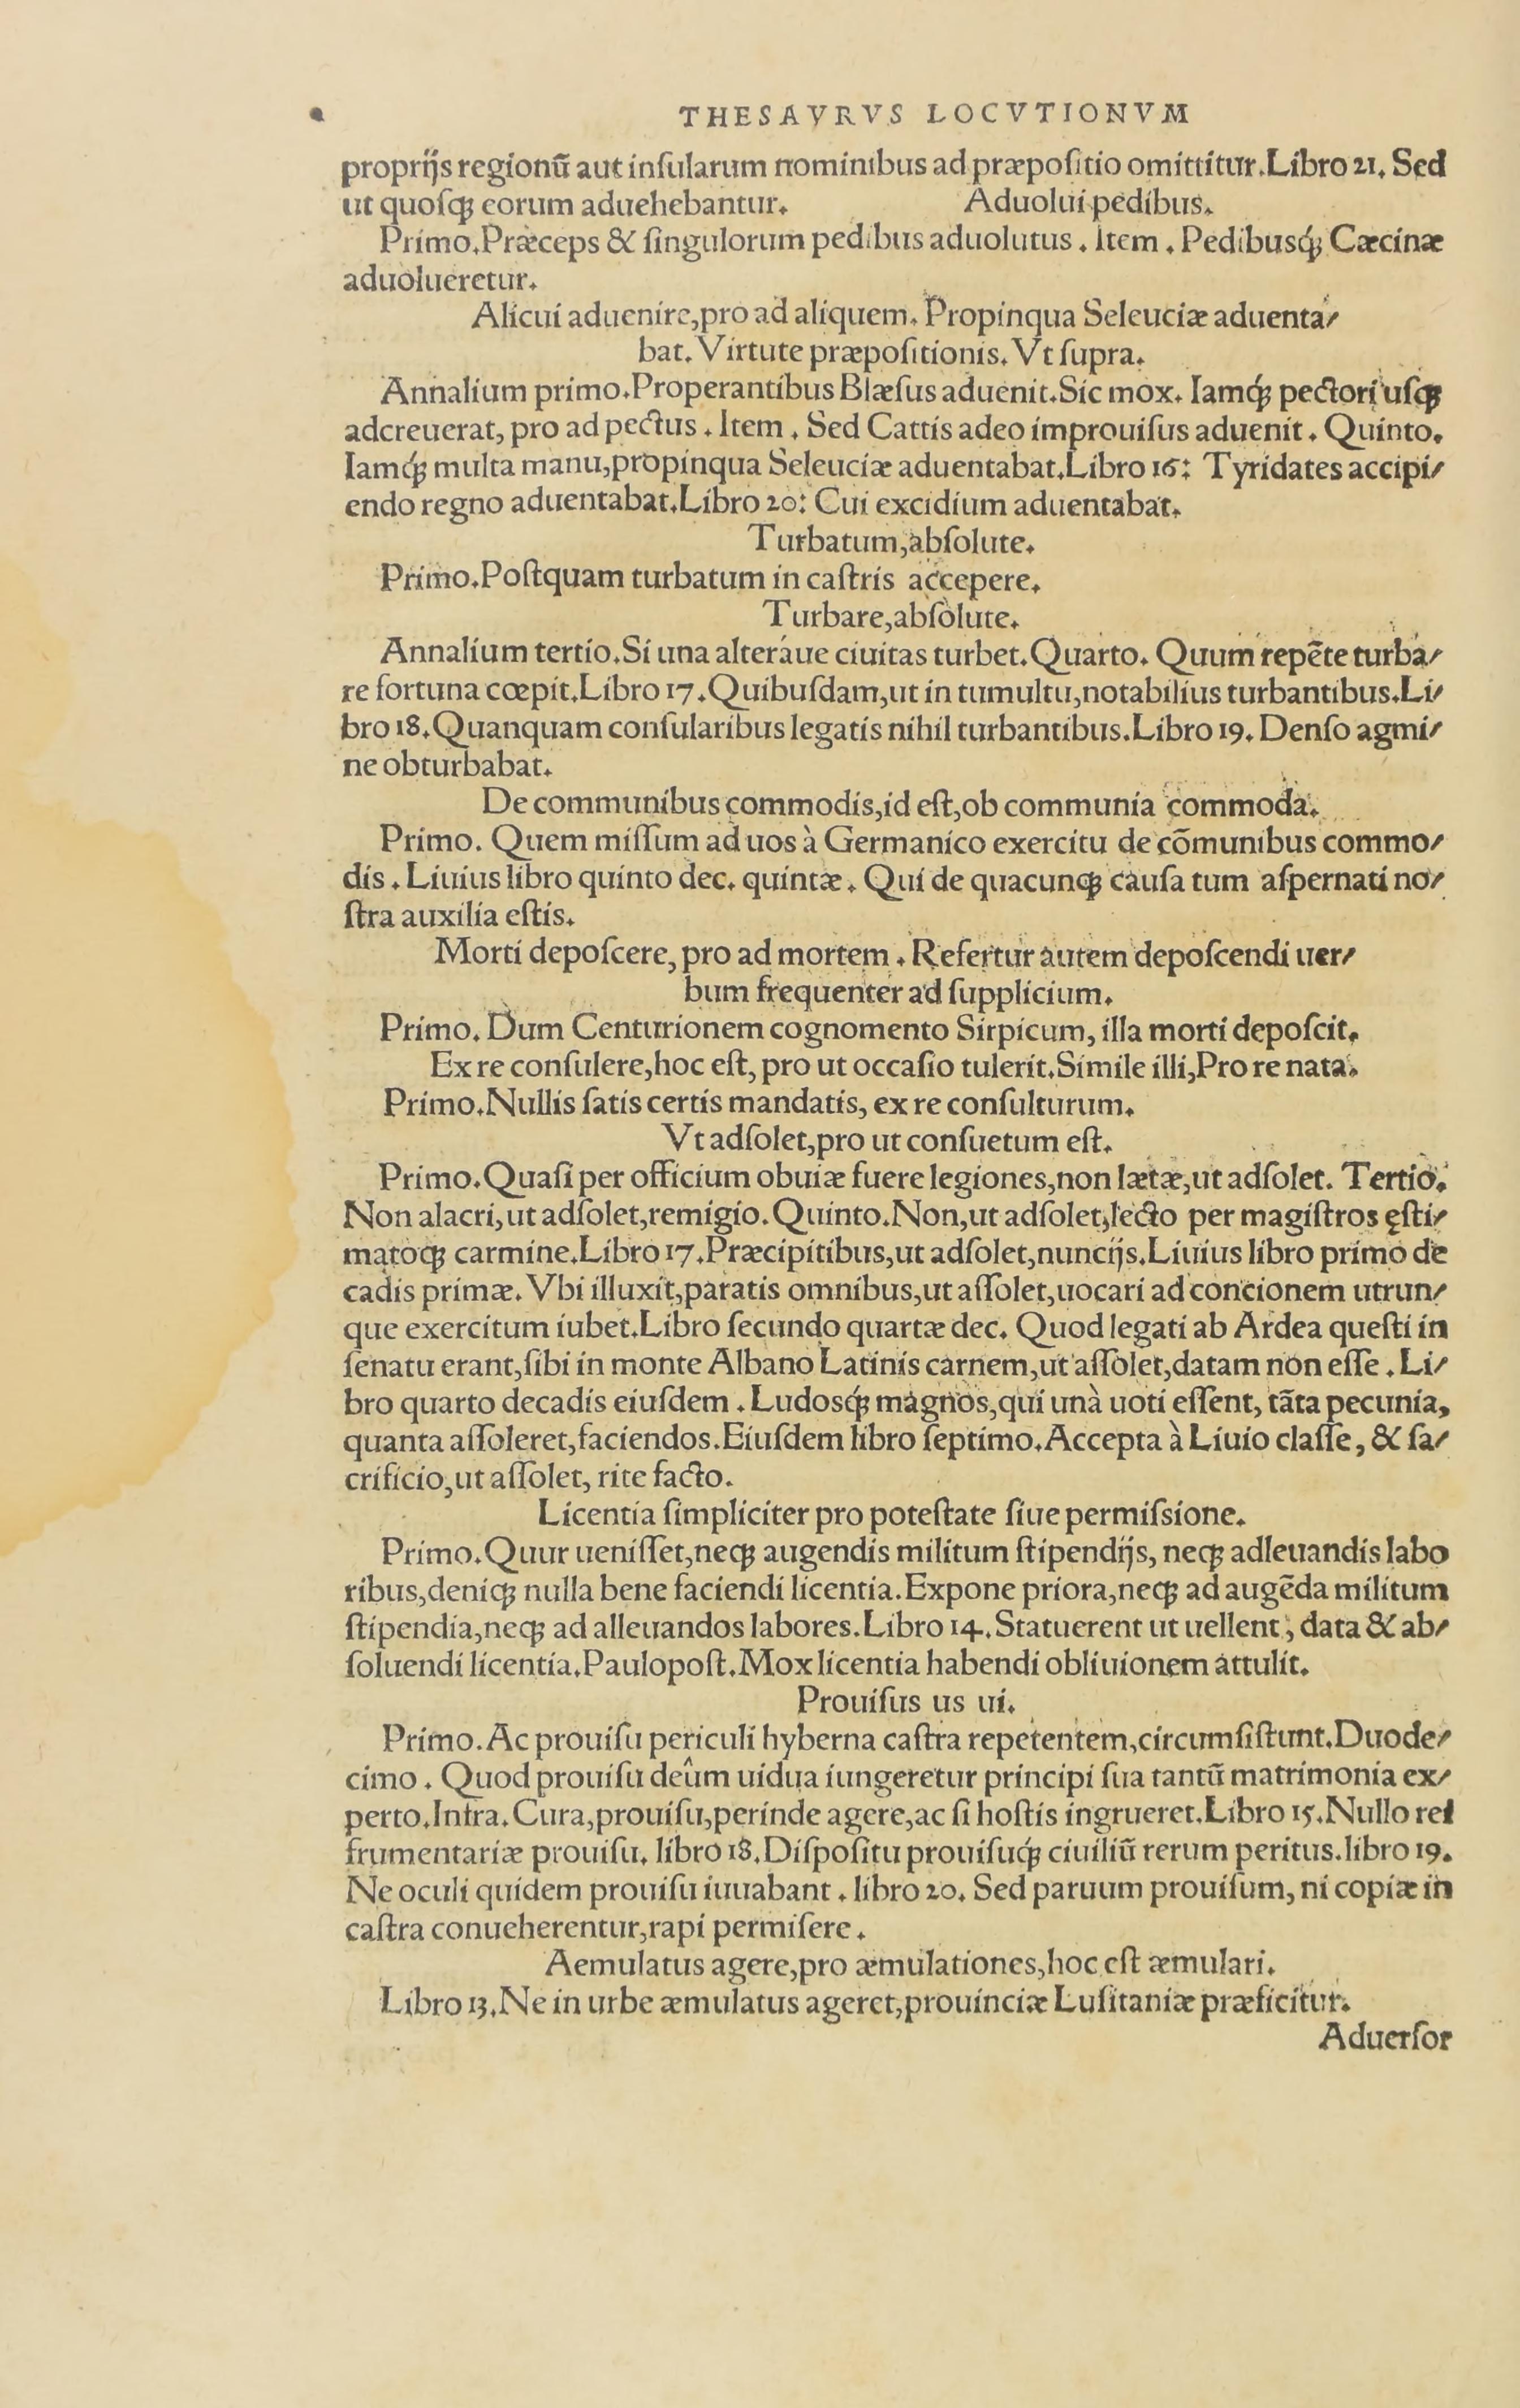 THESAVRVS LOCVTIONVM
proprijs regionũ aut inſularum nominibus ad præpoſitio omittitur.Libro 21. Sed
ut quoſqꝫ eorum aduehebantur. Aduolui pedibus.
Primo.Præceps & ſingulorum pedibus aduolutus . Item . Pedibusqꝫ́ Cæcinæ
aduolueretur.
Alicui aduenire,pro ad aliquem. Propinqua Seleuciæ aduenta/
bat. Virtute præpoſitionis. Vt ſupra.
Annalium primo.Properantibus Blæſus aduenit.Sic mox. Iamqꝫ́ pectori uſqꝫ
adcreuerat, pro ad pectus . Item . Sed Cattis adeo improuiſus aduenit . Quinto.
Iamqꝫ́ multa manu,propinqua Seleuciæ aduentabat.Libro 16: Tyridates accipi/
endo regno aduentabat.Libro 20: Cui excidium aduentabat.
Turbatum,abſolute.
Primo.Poſtquam turbatum in caſtris accepere.
Turbare,abſolute.
Annalium tertio.Si una alteráue ciuitas turbet.Quarto. Quum repẽte turba/
re fortuna cœpit.Libro 17.Quibuſdam,ut in tumultu,notabilius turbantibus.Li/
bro 18.Quanquam conſularibus legatis nihil turbantibus.Libro 19. Denſo agmi/
ne obturbabat.
De communibus commodis,id eſt,ob communia commoda.
Primo. Quem miſſum ad uos à Germanico exercitu de cõmunibus commo/
dis . Liuius libro quinto dec. quintæ . Qui de quacunqꝫ cauſa tum aſpernati no/
ſtra auxilia eſtis.
Morti depoſcere, pro ad mortem . Refertur autem depoſcendi uer/
bum frequenter ad ſupplicium.
Primo. Dum Centurionem cognomento Sirpicum, illa morti depoſcit.
Ex re conſulere,hoc eſt, pro ut occaſio tulerit.Simile illi,Pro re nata.
Primo.Nullis ſatis certis mandatis, ex re conſulturum.
Vt adſolet,pro ut conſuetum eſt.
Primo.Quaſi per officium obuiæ fuere legiones,non lætæ,ut adſolet. Tertio.
Non alacri,ut adſolet,remigio. Quinto.Non,ut adſolet,lecto per magiſtros ęſti/
matoqꝫ carmine.Libro 17.Præcipitibus,ut adſolet,nuncijs.Liuius libro primo de
cadis primæ. Vbi illuxit,paratis omnibus,ut aſſolet,uocari ad concionem utrun/
que exercitum iubet.Libro ſecundo quartæ dec. Quod legati ab Ardea queſti in
ſenatu erant,ſibi in monte Albano Latinis carnem,ut aſſolet,datam non eſſe . Li/
bro quarto decadis eiuſdem . Ludosqꝫ́ magnos,qui unà uoti eſſent, tãta pecunia,
quanta aſſoleret,faciendos.Eiuſdem libro ſeptimo.Accepta à Liuio claſſe, & ſa/
crificio,ut aſſolet, rite facto.
Licentia ſimpliciter pro poteſtate ſiue permiſsione.
Primo.Quur ueniſſet,neqꝫ augendis militum ſtipendijs, neqꝫ adleuandis labo
ribus,deniqꝫ nulla bene faciendi licentia.Expone priora,neqꝫ ad augẽda militum
ſtipendia,neqꝫ ad alleuandos labores.Libro 14.Statuerent ut uellent, data & ab/
ſoluendi licentia.Paulopoſt.Mox licentia habendi obliuionem attulit.
Prouiſus us ui.
Primo.Ac prouiſu periculi hyberna caſtra repetentem,circumſiſtunt.Duode/
cimo . Quod prouiſu deûm uidua iungeretur principi ſua tantũ matrimonia ex/
perto.Infra.Cura,prouiſu,perinde agere,ac ſi hoſtis ingrueret.Libro 15.Nullo rei
frumentariæ prouiſu. libro 18.Diſpoſitu prouiſuqꝫ́ ciuiliũ rerum peritus.libro 19.
Ne oculi quidem prouiſu iuuabant . libro 20. Sed paruum prouiſum, ni copiæ in
caſtra conueherentur,rapi permiſere .
Aemulatus agere,pro æmulationes,hoc eſt æmulari.
Libro 13.Ne in urbe æmulatus ageret,prouinciæ Luſitaniæ præficitur.
Aduerſor